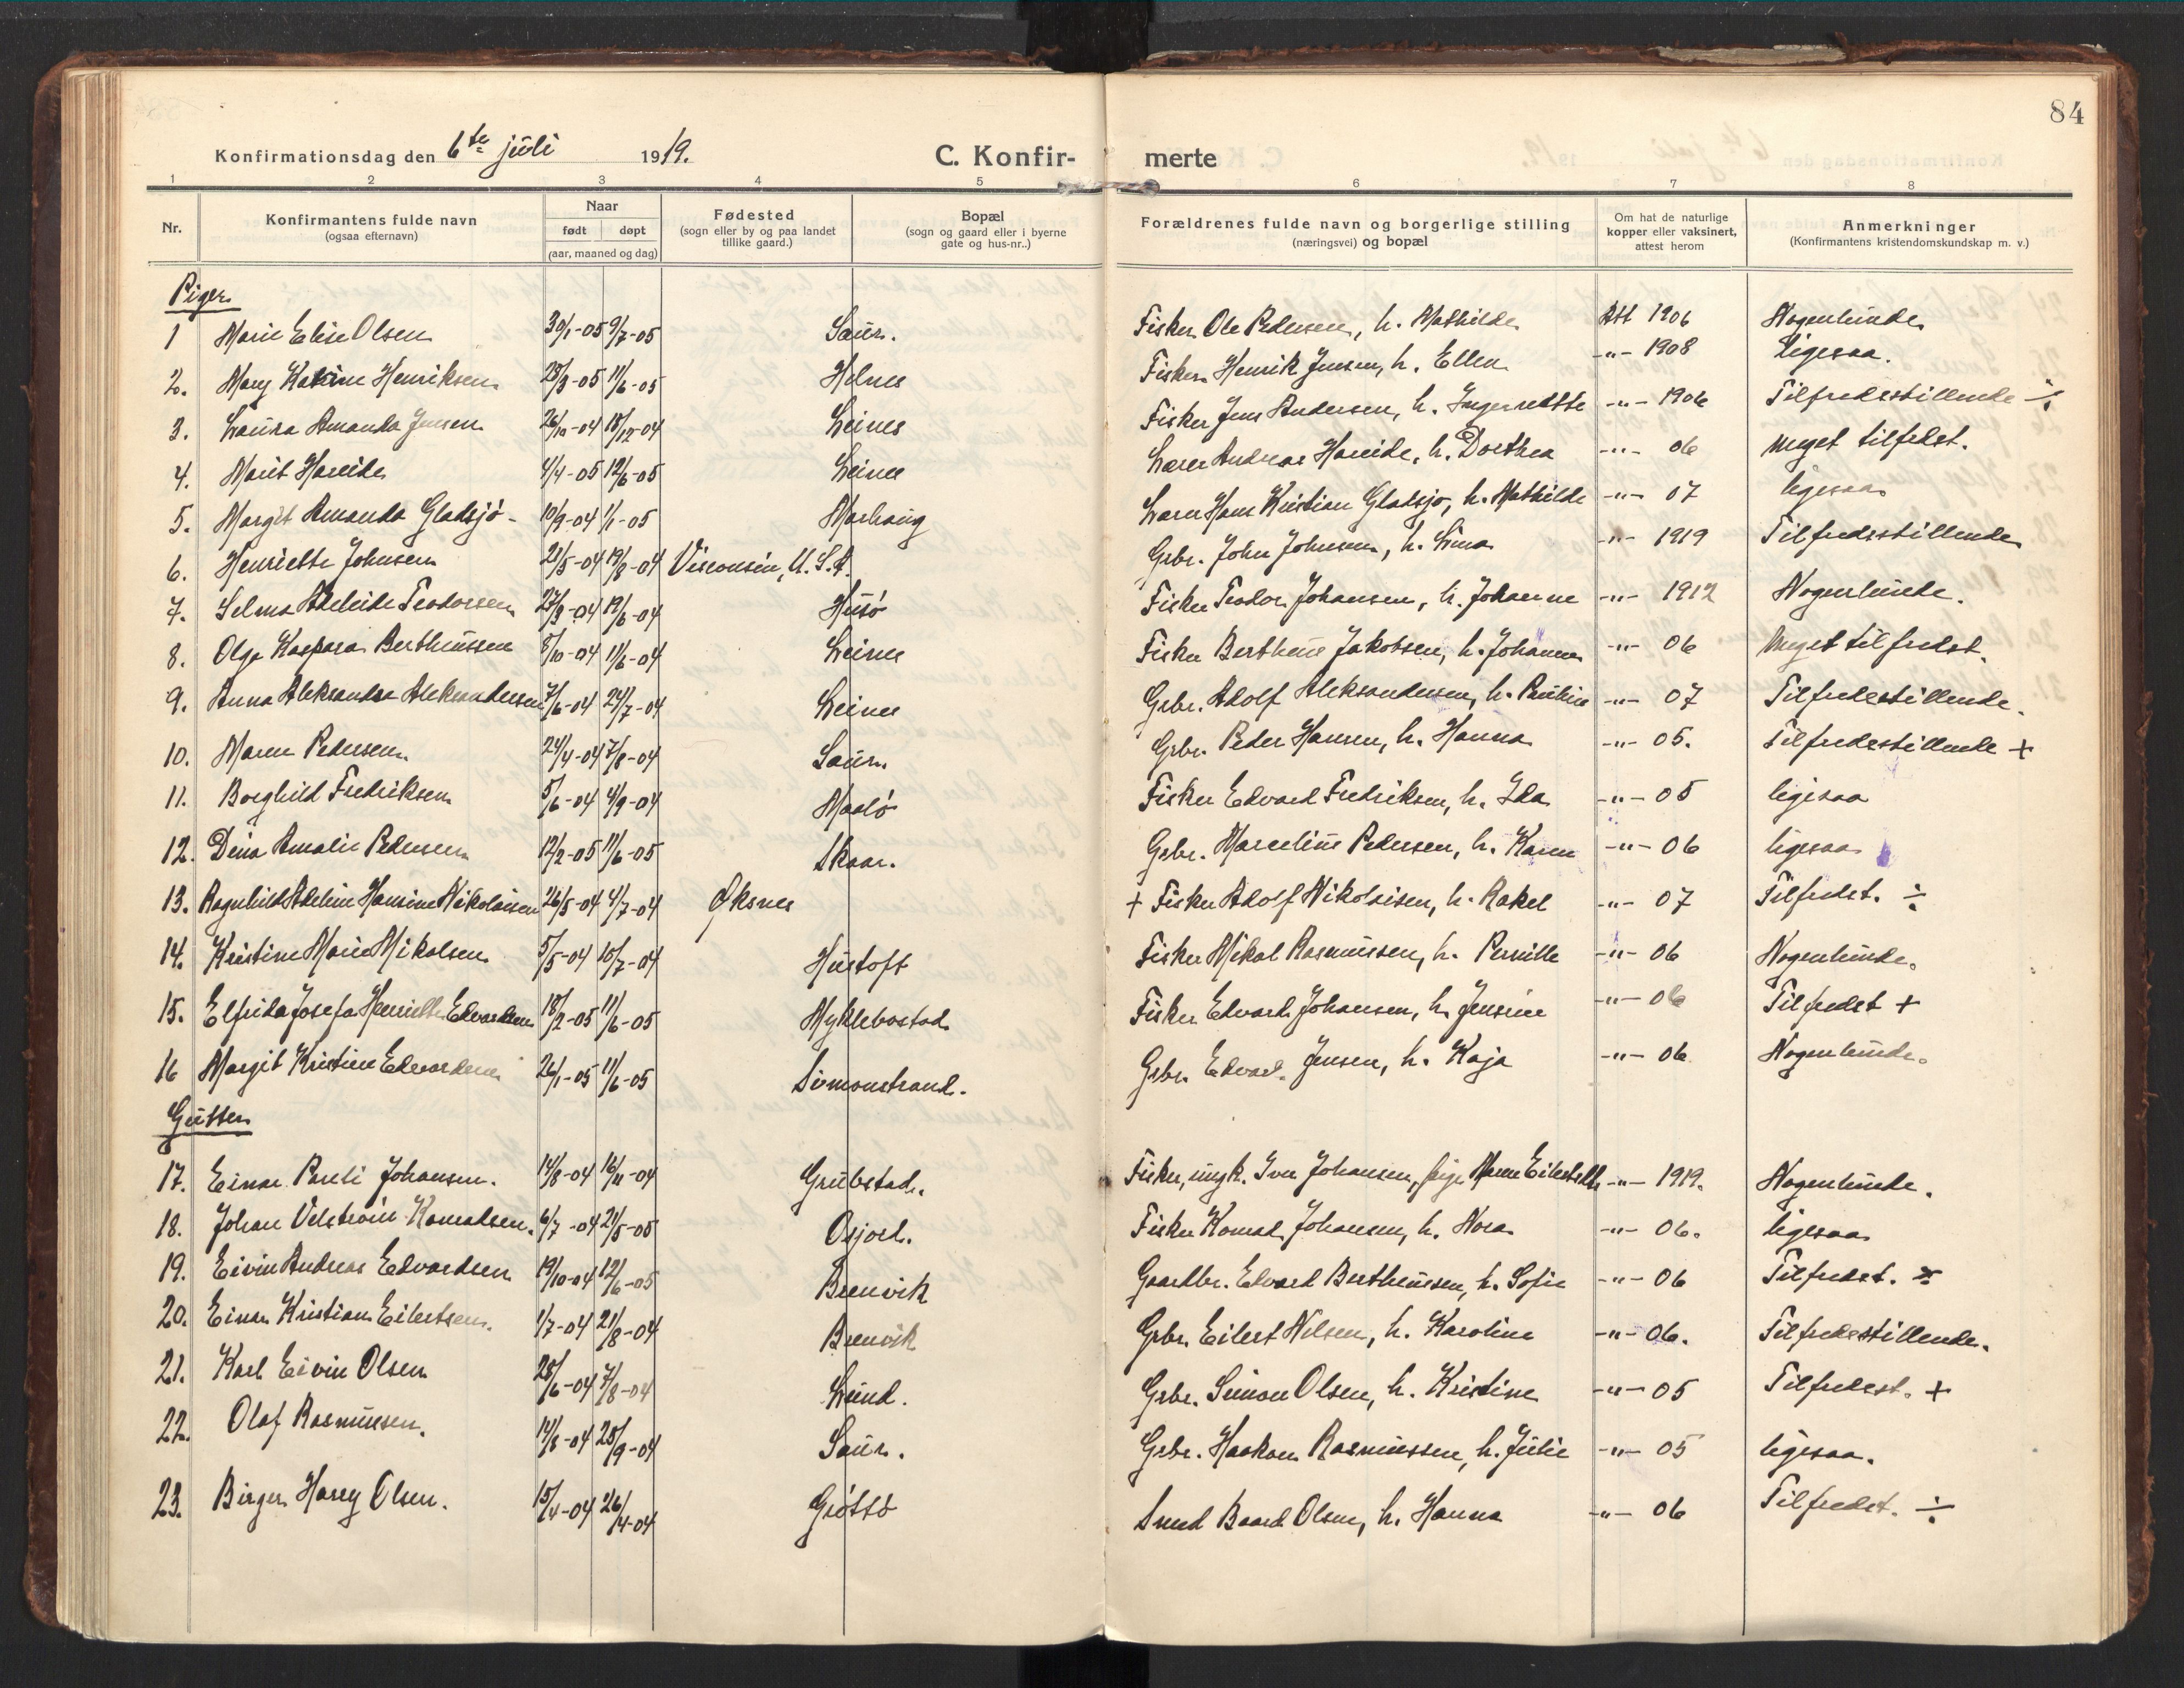 84
Konfirmationsdag den 6te juli 1919. C. Konfir- merte
1 2 3 4 5 6 7 8
Nr. Konfirmantens fulde navn (ogsaa efternavn) Naar født døpt (aar, maaned og dag) Fødested (sogn eller by og paa landet tillike gaard.) Bopæl (sogn og gaard eller i byerne gate og hus-nr..) Forældrenes fulde navn og borgerlige stilling (næringsvei) og bopæl Om hat de naturlige kopper eller vaksinert, attest herom Anmerkninger (Konfirmantens kristendomskundskap m. v.)
Piger
1 Marie Elise Olsen 30/1-05 9/7-05 Saur. Fisker Ole Pedersen, h. Mathilde Att 1906 Nogenlunde
2. Mary Katrine Henriksen 28/3-05 11/6-05 Helnes Fisker Henrik Jensen, h. Ellen -"- 1908 ligesaa.
3. Laura Amanda Jensen 26/10-04 18/12-04 Leines Fisker Jens Andersen, h. Ingeranette -"- 1906 Tilfredsstillende ÷
4. Marit Hareide 4/4-05 12/6-05 Leines Lærer Andreas Hareide, h. Dorthea -"- 06 meget tilfredst.
5. Margit Amanda Gladsjø- 10/9-04 1/1-05 Marhaug Lærer Hans Kristian Gladsjø, h. Mathilde -"- 07 ligesaa
6. Henriette Johnsen 21/5-04 19/8-04 Visconsin, U.S.A. Grbr. John Johnsen, h. Lina -"- 1919 Tilfredsstillende
7. Selma Adeleide Teodorsen 27/3-04 19/6-04 Husø Fisker Teodor Johansen, h. Johanne -"- 1912 Nogenlunde.
8. Olga Kaspara Bertheussen 8/10-04 11/6-04 Leines Fisker Bertheus Jakobsen, h. Johanna -"- 06 Meget tilfredst.
9. Anna Aleksandra Aleksandersen 7/6-04 24/7-04 Leines Grbr. Adolf Aleksandersen, h. Pauline -"- 07 Tilfredsstillende.
10. Maren Pedersen 24/4-04 7/8-04 Saur. Grbr. Peder Hansen, h. Hanna -"- 05. Tilfredsstillende +
11. Borghild Fredriksen 5/6-04 4/9-04 Maalø Fisker Edvard Fredriksen, h. Ida -"- 05 ligesaa
12. Dina Amalie Pedersen 12/2-05 11/6-05 Skaar. Grbr. Marcelius Pedersen, h. Karen -"- 06 ligesaa
13. Ragnhild Adeline Hansine Nikolaisen 26/5-04 4/7-04 Øksnes + Fisker Adolf Nikolaisen, h. Rakel -"- 07 Tilfredst. ÷
14. Kristine Marie Mikalsen 5/5-04 10/7-04 Hustoft Fisker Mikal Rasmussen, h. Pernille -"- 06 Nogenlunde.
15. Elfrida Josefa Henriette Edvardsen 18/2-05 11/6-05 Myklebostad Fisker Edvard Johansen, h. Jensine -"- 06 Tilfredst +
16 Margit Kristine Edvardsen 26/1-05 11/6-05 Simonstrand. Grbr. Edvard Jensen, h. Kaja -"- 06 Nogenlunde.
Gutter
17. Einar Pareli Johansen. 14/8-04 16/11-04 Grubstad. Fisker, ungk. Iver Johansen, pige Maren -"- 1919. Nogenlunde.
18. Johan Velstrøm Konradsen. 6/7-04 21/5-05 Osjord. Fisker Konrad Johansen, h. Nora -"- 06. ligesaa
19. Eivin Andreas Edvardsen 19/10-04 12/6-05 Brenvik Gaardbr. Edvard Bertheussen, h. Sofie -"- 06 Tilfredst.
20. Einar Kristian Eilertsen. 1/7-04 21/8-04 Brenvik Grbr. Eilert Nilsen, h. Karoline -"- 06. Tilfredsstillende.
21. Karl Eivin Olsen 28/6-04 7/8-04 Lund. Grbr. Simon Olsen, h. Kristine -"- 05 Tilfredst. +
22. Olaf Rasmussen. 14/8-04 25/9-04 Saur. Grbr. Haakon Rasmussen, h. Julie -"- 05 ligesaa.
23. Birger Harry Olsen. 15/4-04 26/4-04 Grøttø Smed Baard Olsen, h. Hanna -"- 06 Tilfredst. ÷